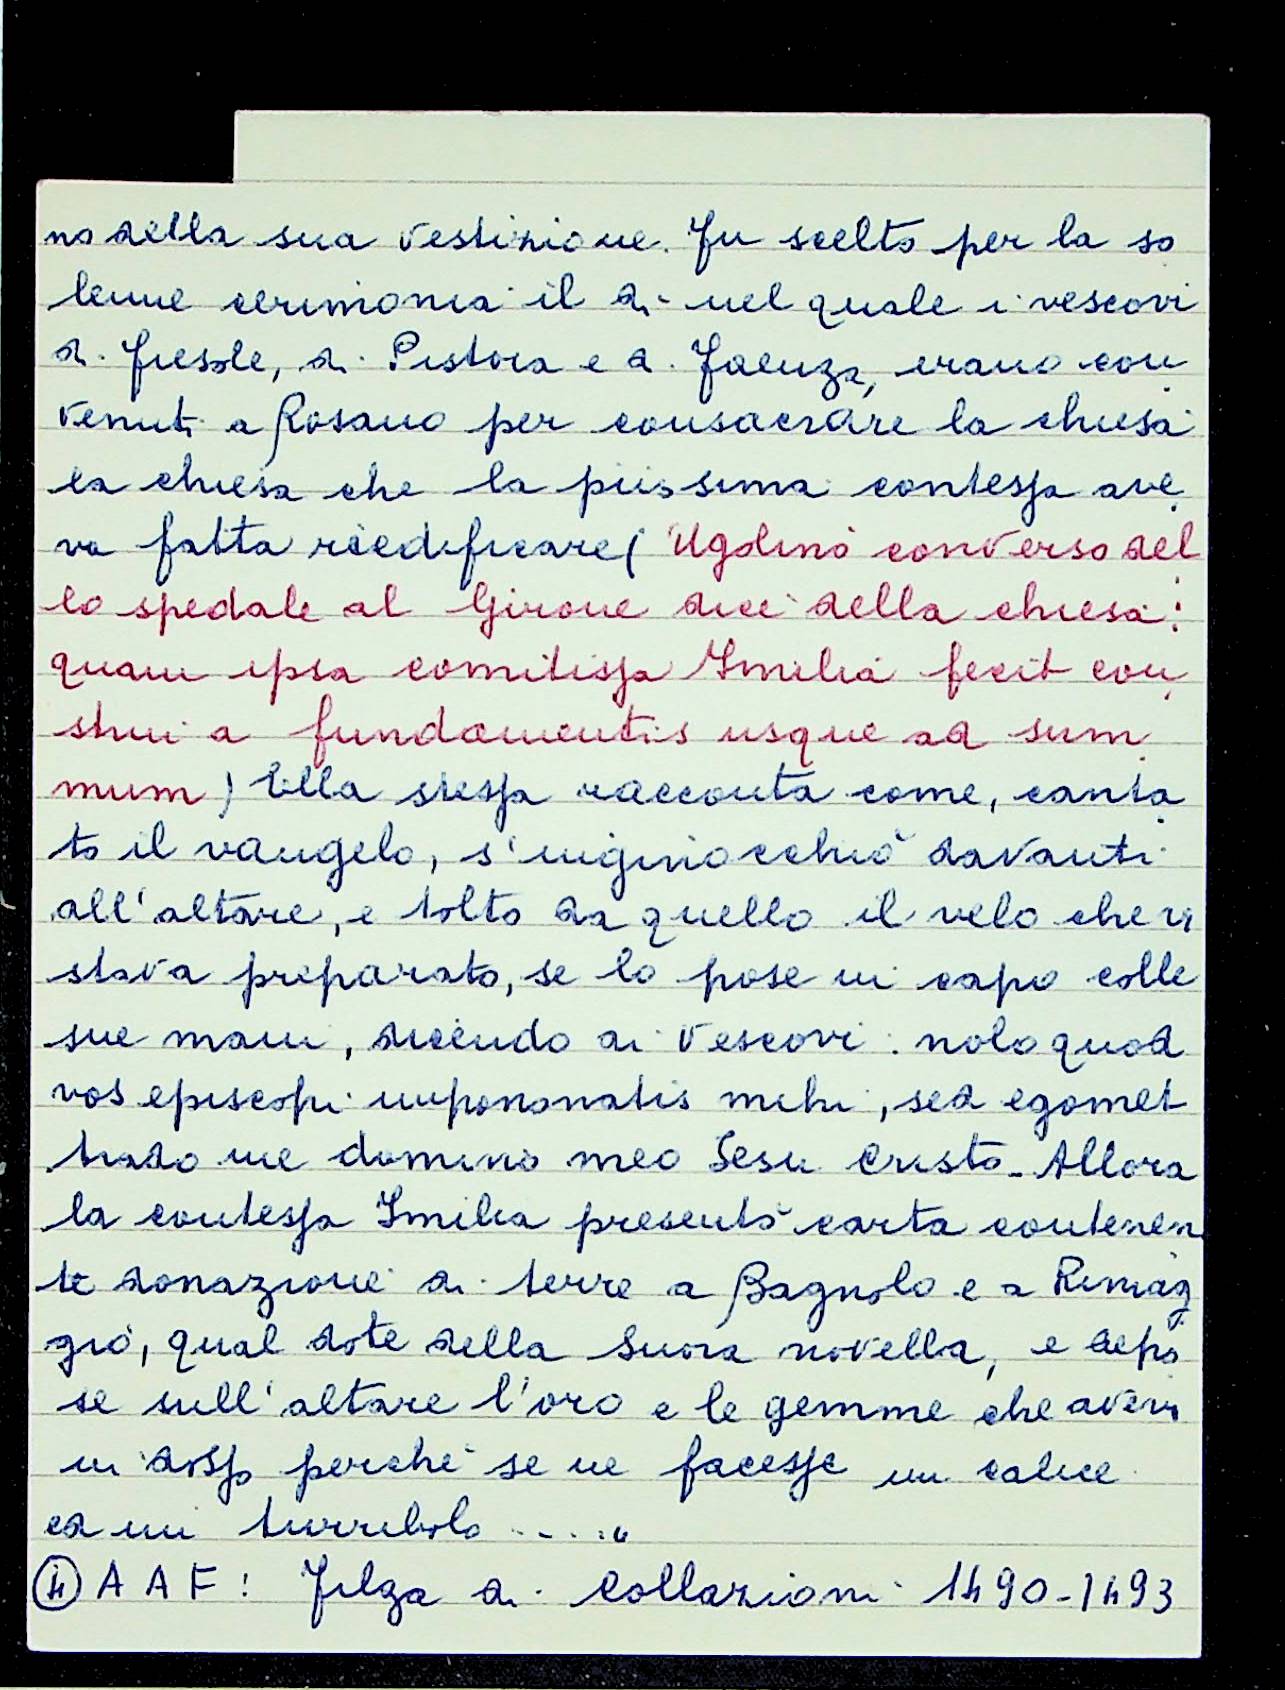 no della sua vestizione. Fu scelto per la so
lenne cerimonia il di nel quale i vescovi
di Fiesole, di Pistoia e di Faenza, erano con
venuti a Rosano per consacrare la chiesa
la chiesa che la piissima contessa ave
va fatta riedificare ( Ugolino converso del
lo spedale al Girone dice della chiesa:
quam ipsa comitissa Imilia fecit con
strui a fundamentis usque ad sum
mum ) Ella stessa racconta come, canta
to il vangelo, s'inginocchiò davanti
all'altare, e tolto da quello il velo che vi
stava preparato, se lo pose in capo colle
sue mani, dicendo ai Vescovi: nolo quod
vos episcopi imponatis mihi, sed egomet
trado me domino meo Jesu Cristo. Allora
la contessa Imilia presentò carta contenen
te donazione di terre a Bagnolo e a Rimag
gio, qual dote della Suora novella, e depo
se sull'altare l'oro e le gemme che avevi
in dosso perchè se ne facesse un calice
ed un turribolo ....."
④ A A F: Filza di Collazioni 1490-1493